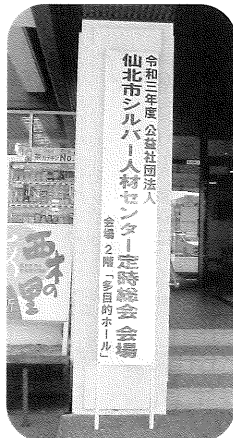 令和三年度 公益社団法人
仙北市シルバー人材センター定時総会 会場
会場 2階 「多目的ホール」
西木の里